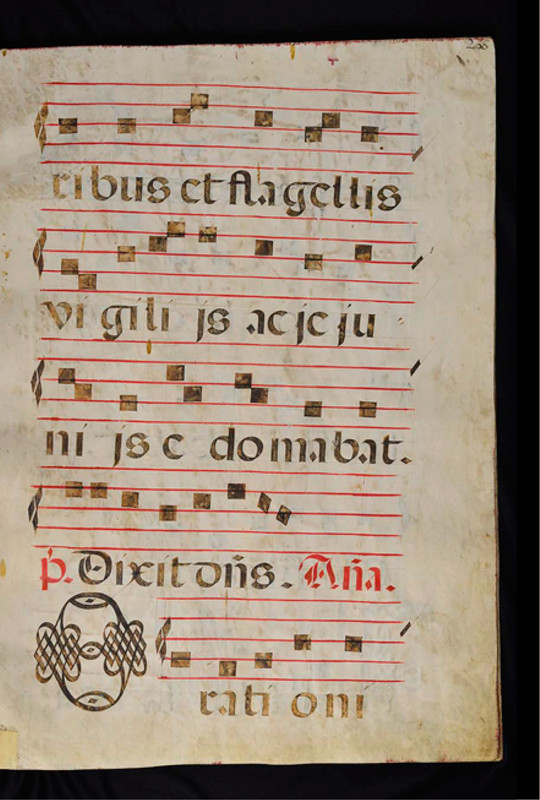 ribus et flagellis
vi gili js ac je ju
ni js e domabat.
p. Dixit dñs. Aña.
O rati oni